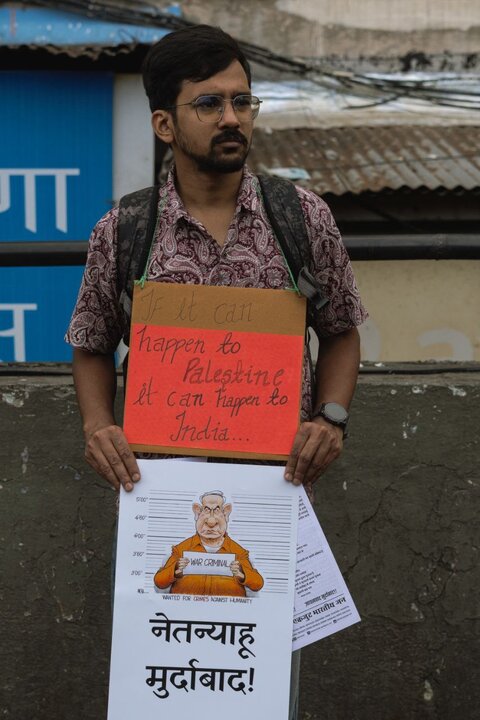 If it can
happen to
Palestine
it can happen to
India...
5'00"
4'60"
4'00"
3'60"
3'00"
WAR CRIMINAL
WANTED FOR CRIMES AGAINST HUMANITY
नेतन्याहू
मुर्दाबाद!